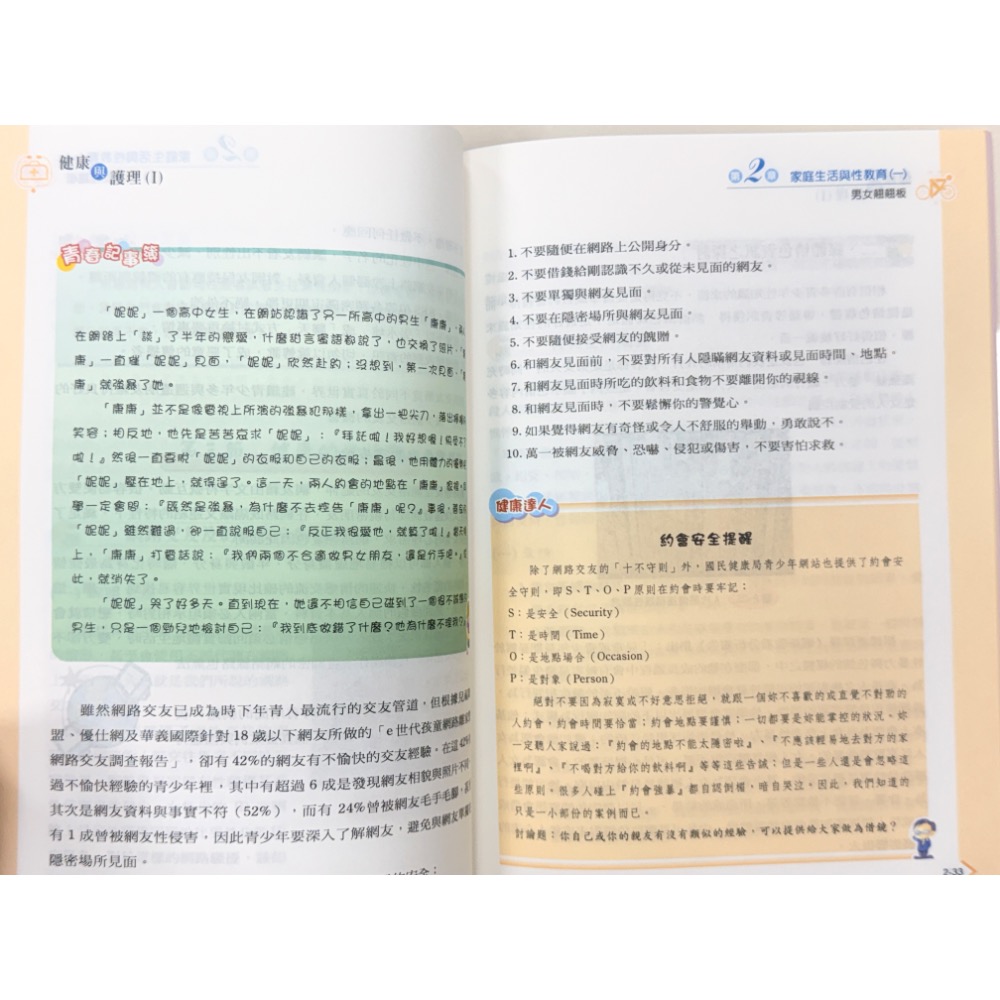 健康與護理(I)
青春記事簿
「妮妮」,一個高中女生,在網站認識了另一所高中的男生「康康」,
在網路上「談」了半年的戀愛,什麼甜言蜜語都說了,也交換了照片,「
康」一直催「妮妮」見面,「妮妮」欣然赴約;沒想到,第一次見面,「
康」就強暴了她。
「康康」並不是像電視上所演的強暴犯那樣,拿出一把尖刀,露出
笑容;相反地,他先是苦苦哀求「妮妮」:『拜託啦!我好想喔!
啦!』然後一直要脫「妮妮」的衣服和自己的衣服;最後,他用體力的優勢
「妮妮」壓在地上,就得逞了。這一天,兩人約會的地點在「康康」
舉一定會問:『既然是強暴,為什麼不去控告「康康」呢?』事後,
「妮妮」雖然難過,卻一直說服自己:『反正我很愛他,就算了啦!』
上,「康康」打電話說:『我們兩個不合適做男女朋友,還是分手吧。』
此,就消失了。
「妮妮」哭了好多天。直到現在,她還不相信自己碰到了一個很不
男生,只是一個勁兒地檢討自己:『我到底做錯了什麼?他為什麼不理我?
雖然網路交友已成為時下年青人最流行的交友管道,但根據兒
盟、優仕網及華義國際針對 18 歲以下網友所做的「e 世代孩童網路
網路交友調查報告」,卻有 42%的網友有不愉快的交友經驗。在這 42%
過不愉快經驗的青少年裡,其中有超過 6 成是發現網友相貌與照片不
其次是網友資料與事實不符(52%),而有 24%曾被網友毛手毛腳,
有 1 成曾被網友性侵害,因此青少年要深入了解網友,避免與網友
隱密場所見面。
第2章 家庭生活與性教育(一)
男女翹翹板
1. 不要隨便在網路上公開身分。
2. 不要借錢給剛認識不久或從未見面的網友。
3. 不要單獨與網友見面。
4. 不要在隱密場所與網友見面。
5. 不要隨便接受網友的餽贈。
6. 和網友見面前,不要對所有人隱瞞網友資料或見面時間、地點。
7. 和網友見面時所吃的飲料和食物不要離開你的視線。
8. 和網友見面時,不要鬆懈你的警覺心。
9. 如果覺得網友有奇怪或令人不舒服的舉動,勇敢說不。
10. 萬一被網友威脅、恐嚇、侵犯或傷害,不要害怕求救。
健康達人
約會安全提醒
除了網路交友的「十不守則」外,國民健康局青少年網站也提供了約會安
全守則,即 S、T、O、P 原則在約會時要牢記:
S:是安全(Security)
T:是時間(Time)
O:是地點場合(Occasion)
P:是對象(Person)
絕對不要因為寂寞或不好意思拒絕,就跟一個妳不喜歡的或直覺不對勁的
人約會,約會時間要恰當;約會地點要謹慎;一切都要是妳能掌控的狀況。妳
一定聽人家說過:『約會的地點不能太隱密啦』、『不應該輕易地去對方的家
裡啊』、『不喝對方給你的飲料啊』等等這些告誡;但是一些人還是會忽略這
些原則。很多人碰上『約會強暴』都自認倒楣,暗自哭泣。因此,我們知道的
只是一小部份的案例而已。
討論題:你自己或你的親友有沒有類似的經驗,可以提供給大家做為借鏡?
2-33